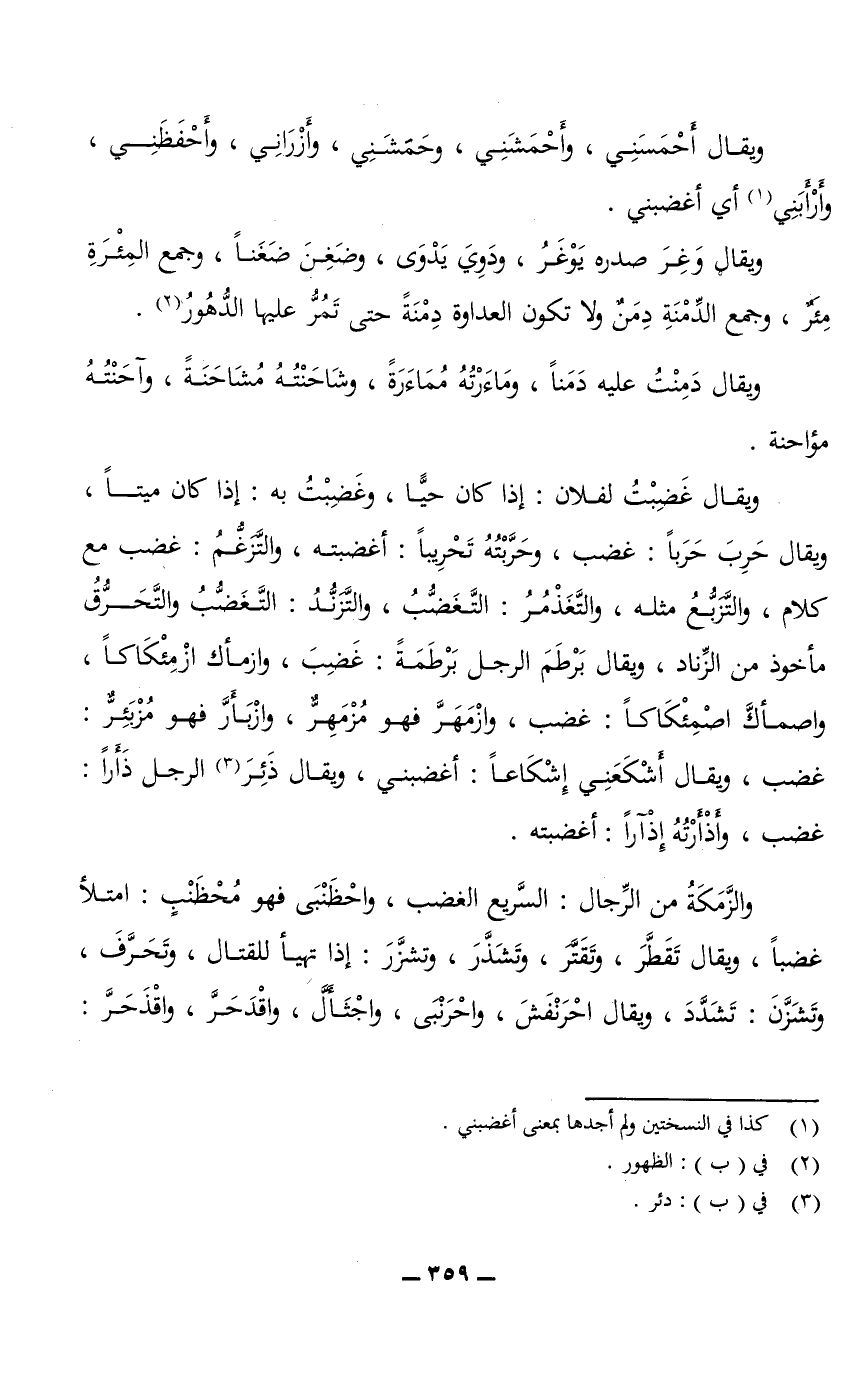 ويقال أَحْمَسَنِي ، وأَحْمَشَنِي ، وحَمّشَنِي ، وأَزْرَانِي ، وأَحْفَظَنِي ،
وأَرْأَبَنِي(١) أي أغضبني .
ويقال وَغِرَ صدره يَوْغَرُ ، ودَوِيَ يَدْوَى ، وضَغِنَ ضَغَناً ، وجمع المِئْرَةِ
مِئَرٌ ، وجمع الدِّمْنَةِ دِمَنٌ ولا تكون العداوة دِمْنَةً حتى تَمُرُّ عليها الدُّهُورُ(٢) .
ويقال دَمِنْتُ عليه دَمَناً ، ومَاءَرْتُهُ مُمَاءَرَةً ، وشَاحَنْتُهُ مُشَاحَنَةً ، وآحَنْتُهُ
مؤاحنة .
ويقال غَضِبْتُ لفلان : إذا كان حيًّا ، وغَضِبْتُ به : إذا كان ميتاً ،
ويقال حَرِبَ حَرَباً : غضب ، وحَرَّبْتُهُ تَحْرِيباً : أغضبته ، والتَّزَغُّمُ : غضب مع
كلام ، والتَّزَبُّعُ مثله ، والتَّغَذْمُرُ : التَّغَضُّبُ ، والتَّزَنُّدُ : التَّغَضُّبُ والتَّحَرُّقُ
مأخوذ من الزِّناد ، ويقال بَرْطَمَ الرجل بَرْطَمَةً : غَضِبَ ، وازمأك ازْمِئْكَاكاً ،
واصمأكَّ اصْمِئْكَاكاً : غضب ، وازْمَهَرَّ فهو مُزْمَهِرٌّ ، وازْبَأَرَّ فهو مُزْبَئِرٌّ :
غضب ، ويقال أَشْكَعَنِي إِشْكَاعاً : أغضبني ، ويقال ذَئِرَ(٣) الرجل ذَأَراً :
غضب ، وأَذْأَرْتُهُ إِذْآراً : أغضبته .
والزَّمَكَةُ من الرِّجال : السَّريع الغضب ، واحْظَنْبَى فهو مُحْظَنْبٍ : امتلأ
غضباً ، ويقال تَقَطَّرَ ، وتَقَتَّرَ ، وتَشَذَّرَ ، وتشزَّرَ : إذا تهيأ للقتال ، وتَحَرَّفَ ،
وتَشَزَّنَ : تَشَدَّدَ ، ويقال احْرَنْفَشَ ، واحْرَنْبَى ، واجْثَأَلَّ ، واقْدَحَرَّ ، واقْذَحَرَّ :
(١) كذا في النسختين ولم أجدها بمعنى أغضبني .
(٢) في ( ب ) : الظهور .
(٣) في ( ب ) : دئر .
ــ ٣٥٩ ــ